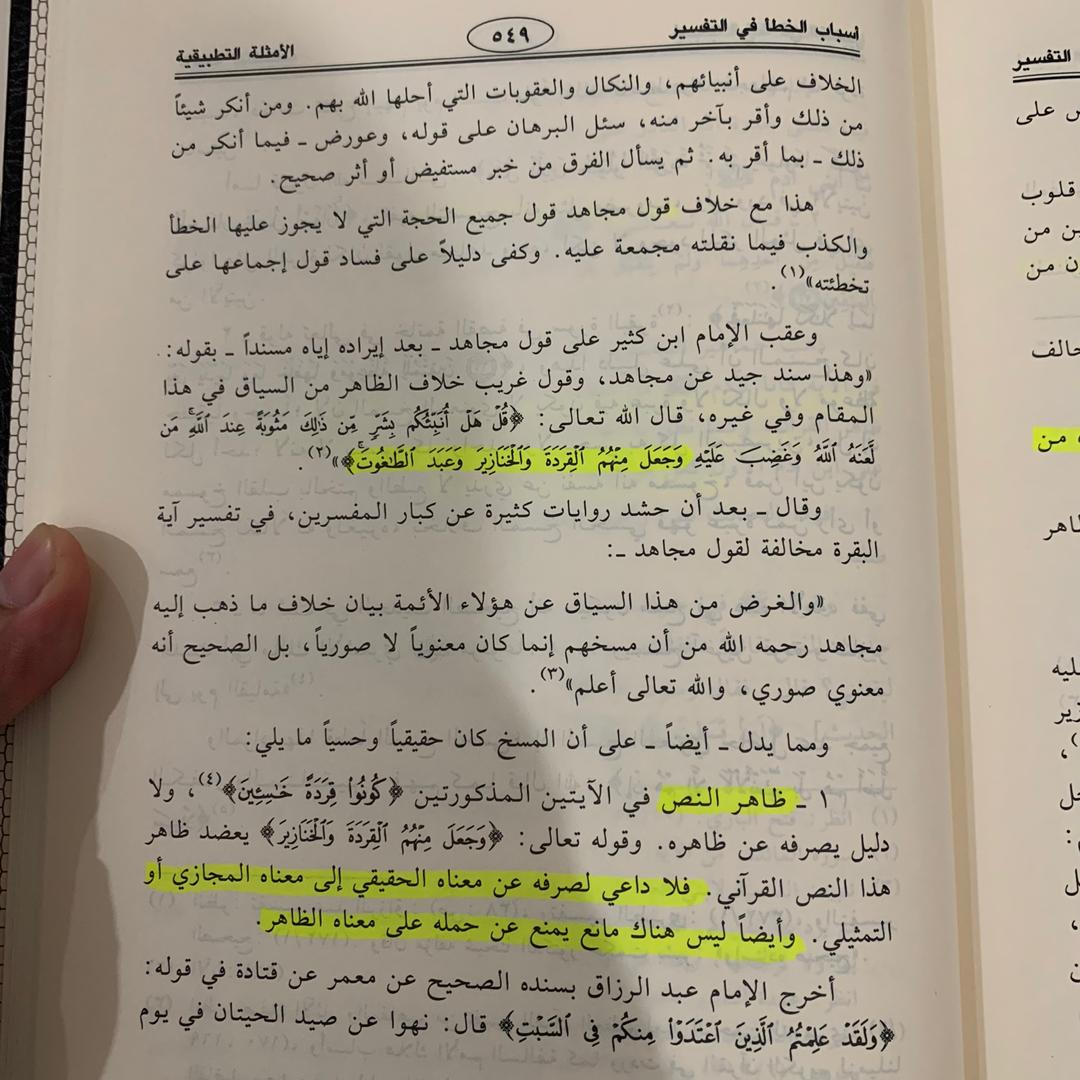 أسباب الخطأ في التفسير
٥٤٩
الأمثلة التطبيقية
الخلاف على أنبيائهم، والنكال والعقوبات التي أحلها الله بهم. ومن أنكر شيئاً
من ذلك وأقر بآخر منه، سئل البرهان على قوله، وعورض ـ فيما أنكر من
ذلك ـ بما أقر به. ثم يسأل الفرق من خبر مستفيض أو أثر صحيح.
هذا مع خلاف قول مجاهد قول جميع الحجة التي لا يجوز عليها الخطأ
والكذب فيما نقلته مجمعة عليه. وكفى دليلاً على فساد قول إجماعها على
تخطئته»(١).
وعقب الإمام ابن كثير على قول مجاهد ـ بعد إيراده إياه مسنداً ـ بقوله:
«وهذا سند جيد عن مجاهد، وقول غريب خلاف الظاهر من السياق في هذا
المقام وفي غيره، قال الله تعالى: ﴿قُلْ هَلْ أُنَبِّئُكُم بِشَرٍّ مِّن ذَٰلِكَ مَثُوبَةً عِندَ ٱللَّهِ ۚ مَن
لَّعَنَهُ ٱللَّهُ وَغَضِبَ عَلَيْهِ وَجَعَلَ مِنْهُمُ ٱلْقِرَدَةَ وَٱلْخَنَازِيرَ وَعَبَدَ ٱلطَّٰغُوتَ ۚ﴾»(٢).
وقال ـ بعد أن حشد روايات كثيرة عن كبار المفسرين، في تفسير آية
البقرة مخالفة لقول مجاهد ـ:
«والغرض من هذا السياق عن هؤلاء الأئمة بيان خلاف ما ذهب إليه
مجاهد رحمه الله من أن مسخهم إنما كان معنوياً لا صورياً، بل الصحيح أنه
معنوي صوري، والله تعالى أعلم»(٣).
ومما يدل ـ أيضاً ـ على أن المسخ كان حقيقياً وحسياً ما يلي:
١ ـ ظاهر النص في الآيتين المذكورتين ﴿كُونُوا۟ قِرَدَةً خَٰسِـِٔينَ﴾(٤)، ولا
دليل يصرفه عن ظاهره. وقوله تعالى: ﴿وَجَعَلَ مِنْهُمُ ٱلْقِرَدَةَ وَٱلْخَنَازِيرَ﴾ يعضد ظاهر
هذا النص القرآني. فلا داعي لصرفه عن معناه الحقيقي إلى معناه المجازي أو
التمثيلي. وأيضاً ليس هناك مانع يمنع عن حمله على معناه الظاهر.
أخرج الإمام عبد الرزاق بسنده الصحيح عن معمر عن قتادة في قوله:
﴿وَلَقَدْ عَلِمْتُمُ ٱلَّذِينَ ٱعْتَدَوْا۟ مِنكُمْ فِى ٱلسَّبْتِ﴾ قال: نهوا عن صيد الحيتان في يوم
التفسير
على
قلوب
من
من
من